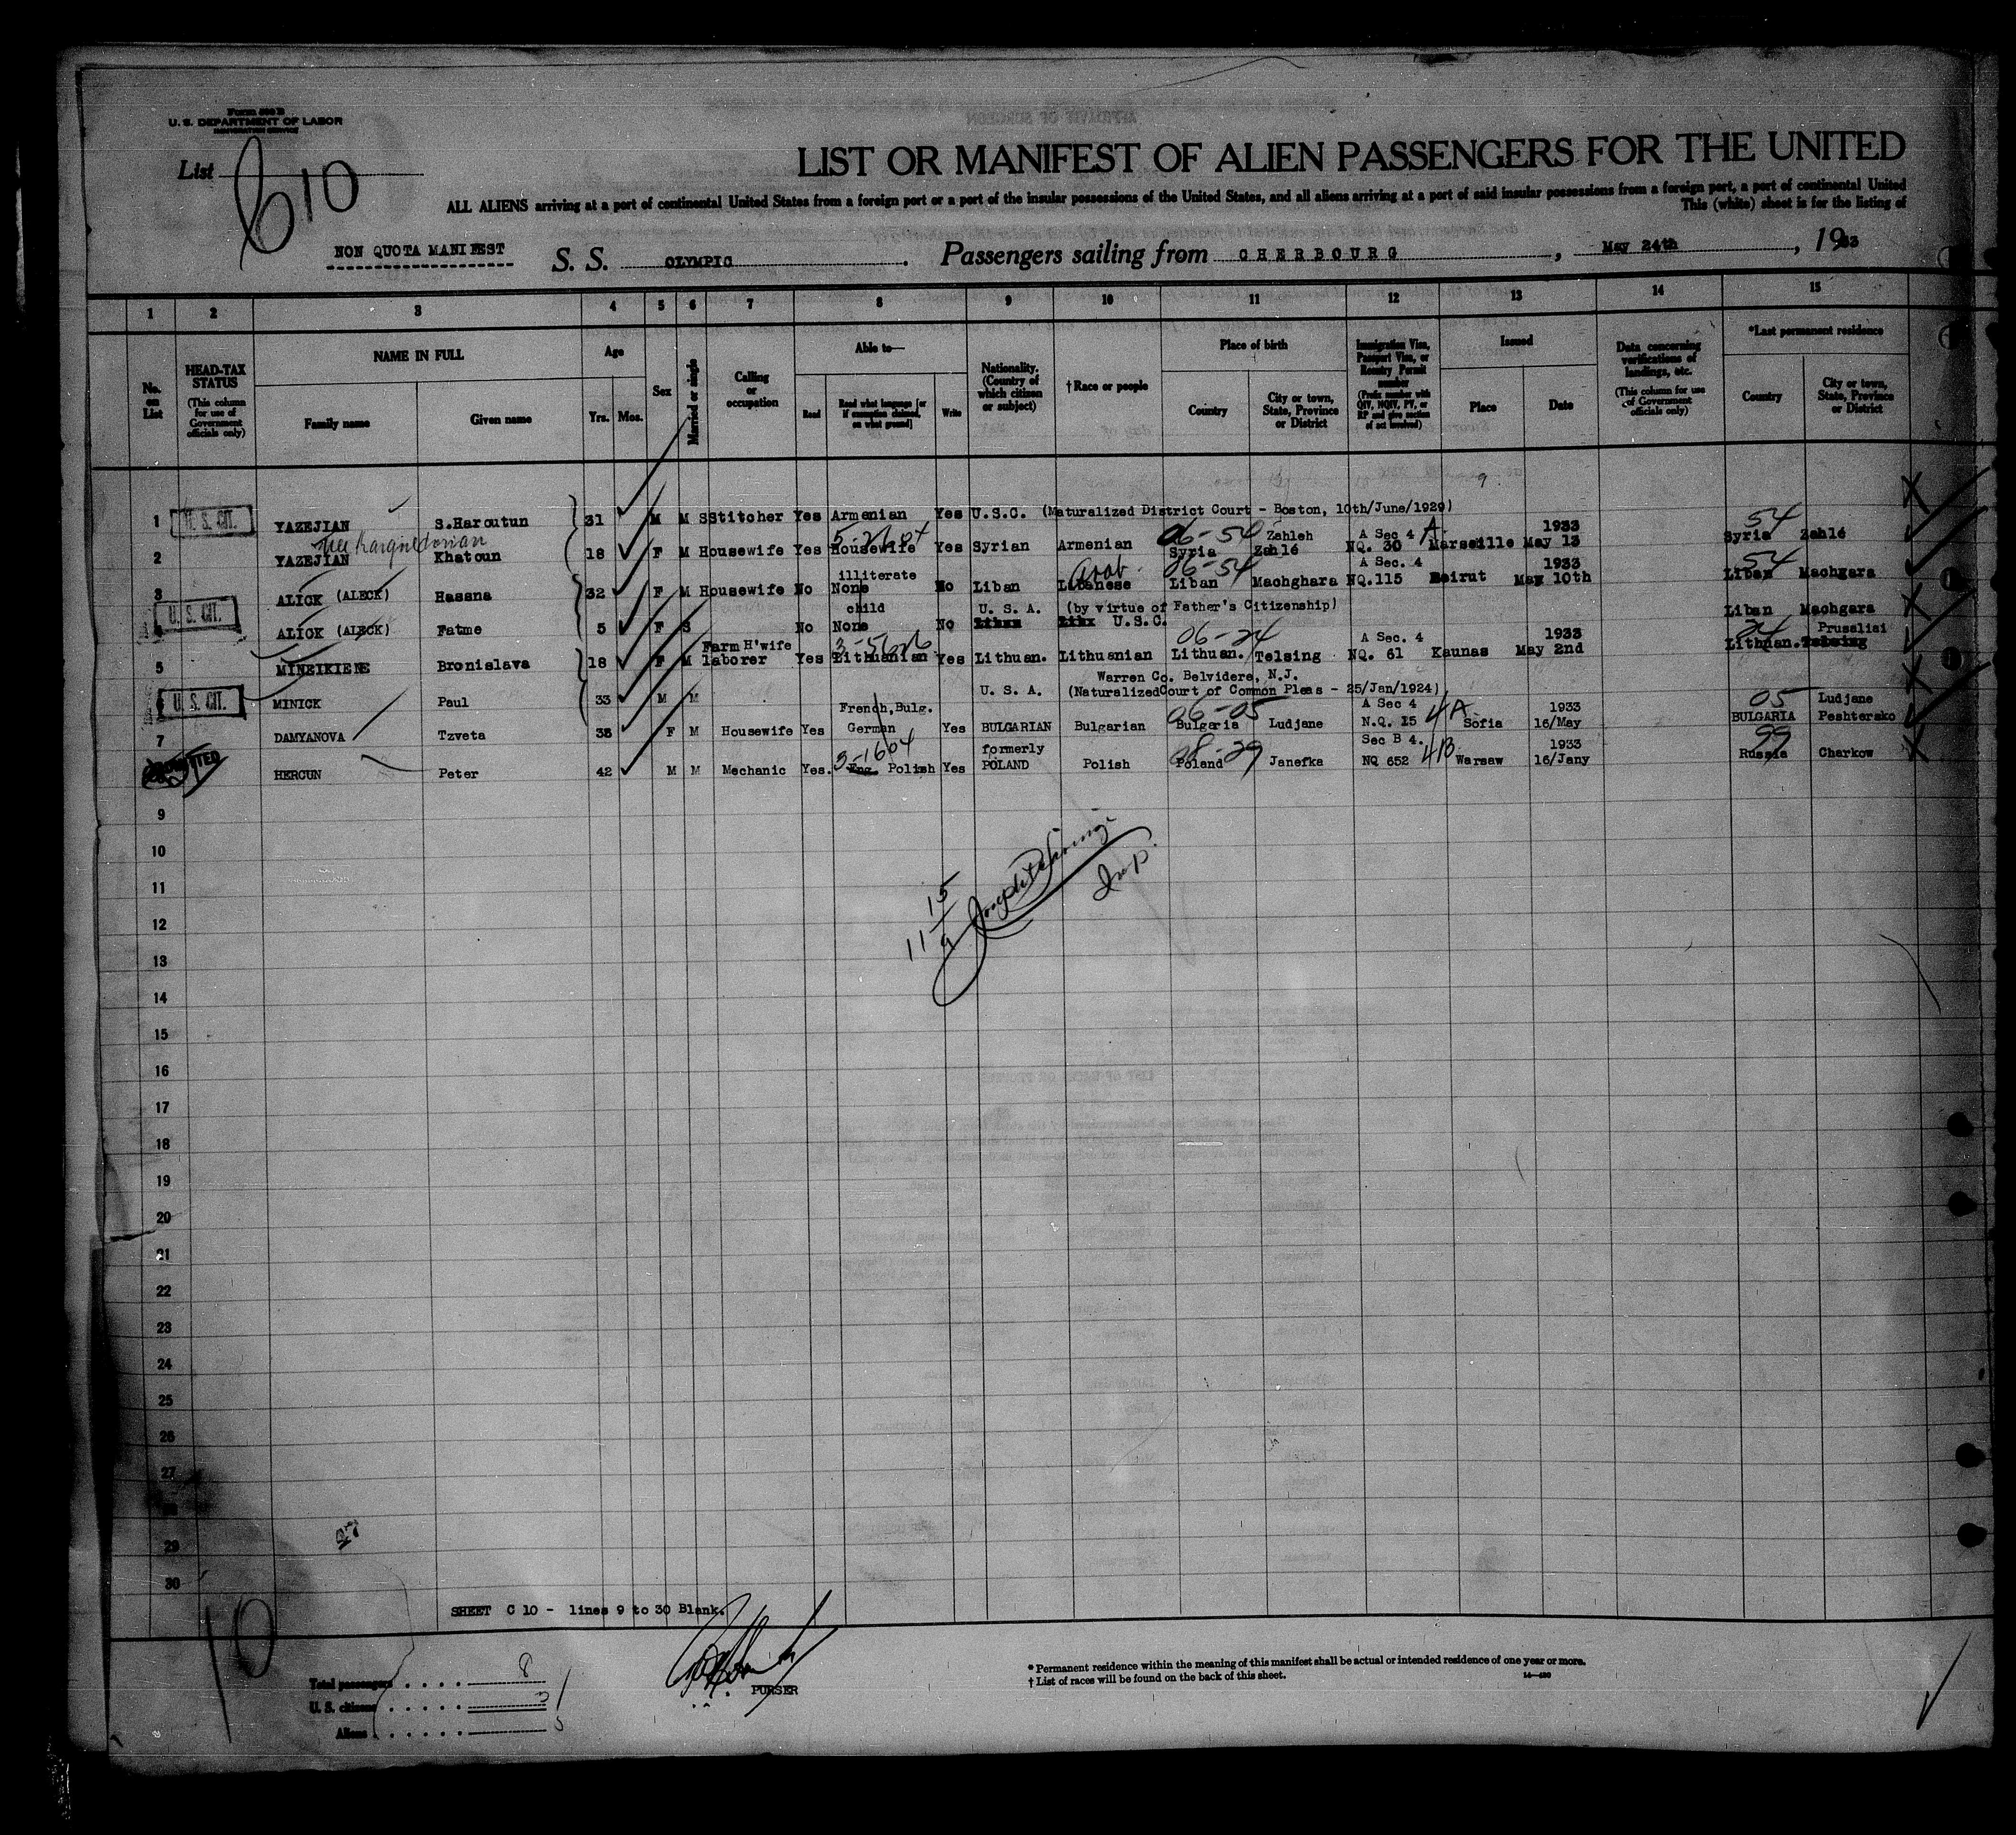 Form 500 B
U. S. DEPARTMENT OF LABOR
IMMIGRATION SERVICE
List C 10
LIST OR MANIFEST OF ALIEN PASSENGERS FOR THE UNITED
ALL ALIENS arriving at a port of continental United States from a foreign port or a port of the insular possessions of the United States, and all aliens arriving at a port of said insular possessions from a foreign port, a port of continental United
This (white) sheet is for the listing of
NON QUOTA MANIFEST S. S. OLYMPIC. Passengers sailing from CHERBOURG, May 24th, 1933
1 2 3 4 5 6 7 8 9 10 11 12 13 14 15
No. on List
HEAD-TAX STATUS (This column for use of Government officials only)
NAME IN FULL Family name Given name
Age Yrs. Mos.
Sex
Married or single
Calling or occupation
Able to— Read Read what language [or if exemption claimed, on what ground] Write
Nationality. (Country of which citizen or subject)
† Race or people
Place of birth Country City or town, State, Province or District
Immigration Visa, Passport Visa, or Reentry Permit number (Prefix number with QIV, NQIV, PV, or RP and give section of act involved)
Issued Place Date
Data concerning verifications of landings, etc. (This column for use of Government officials only)
*Last permanent residence Country City or town, State, Province or District
1 U. S. CIT. YAZEJIAN S.Haroutun 31 M M SStitcher Yes Armenian Yes U.S.C. (Naturalized District Court - Boston, 10th/June/1929) 54
5- 06-54 Zahleh A Sec 4 A 1933
2 YAZEJIAN Khatoun 18 F M Housewife Yes Housewife Yes Syrian Armenian Syria Zahlé NQ. 30 Marseille May 13 Syria Zahlé
illiterate Arab 06-54 A Sec. 4 1933 54
3 ALICK (ALECK) Hassna 32 F M Housewife No None No Liban Libanese Liban Machghara NQ.115 Beirut May 10th Liban Machgara
U. S. CIT. child U. S. A. (by virtue of Father's Citizenship) Liban Machgara
4 ALICK (ALECK) Fatme 5 F S No None No Liban U.S.C.
Farm H'wife 06-24 A Sec. 4 1933 24 Prusaliai
5 MINEIKIENE Bronislava 18 F M laborer Yes Lithuanian Yes Lithuan. Lithuanian Lithuan. Telsing NQ. 61 Kaunas May 2nd Lithuan. Telsing
Warren Co. Belvidere, N.J.
6 U. S. CIT. MINICK Paul 33 M M U. S. A. (Naturalized Court of Common Pleas - 25/Jan/1924)
French, Bulg. 06-05 A Sec 4 4A 1933 05 Ludjane
7 DAMYANOVA Tzveta 38 F M Housewife Yes German Yes BULGARIAN Bulgarian Bulgaria Ludjane N.Q. 15 Sofia 16/May BULGARIA Peshtersko
ADMITTED 3-1604 formerly 08-29 Sec B 4. 4B 1933 99
HERCUN Peter 42 M M Mechanic Yes. Eng. Polish Yes POLAND Polish Poland Janefka NQ 652 Warsaw 16/Jany Russia Charkow
9
10
11
12
13
14
15
16
17
18
19
20
21
22
23
24
25
26
27
28
29
30
11 15/9
Insp.
SHEET C 10 - lines 9 to 30 Blank.
10
PURSER
Total passengers 8
U. S. citizens 3
Aliens 5
* Permanent residence within the meaning of this manifest shall be actual or intended residence of one year or more.
† List of races will be found on the back of this sheet.
14—430